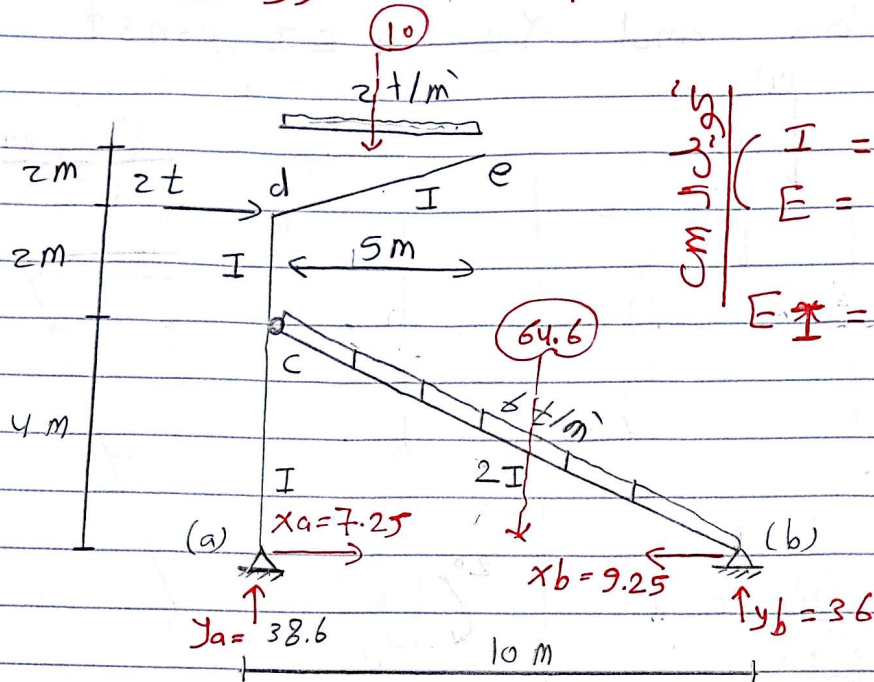 10
2 t/m`
2m
2t
d
e
I
I =
E =
2m
I
5m
E I =
c
64.6
6 t/m`
4m
2I
I
(a)
xa=7.25
xb=9.25
(b)
ya= 38.6
yb=36
10 m